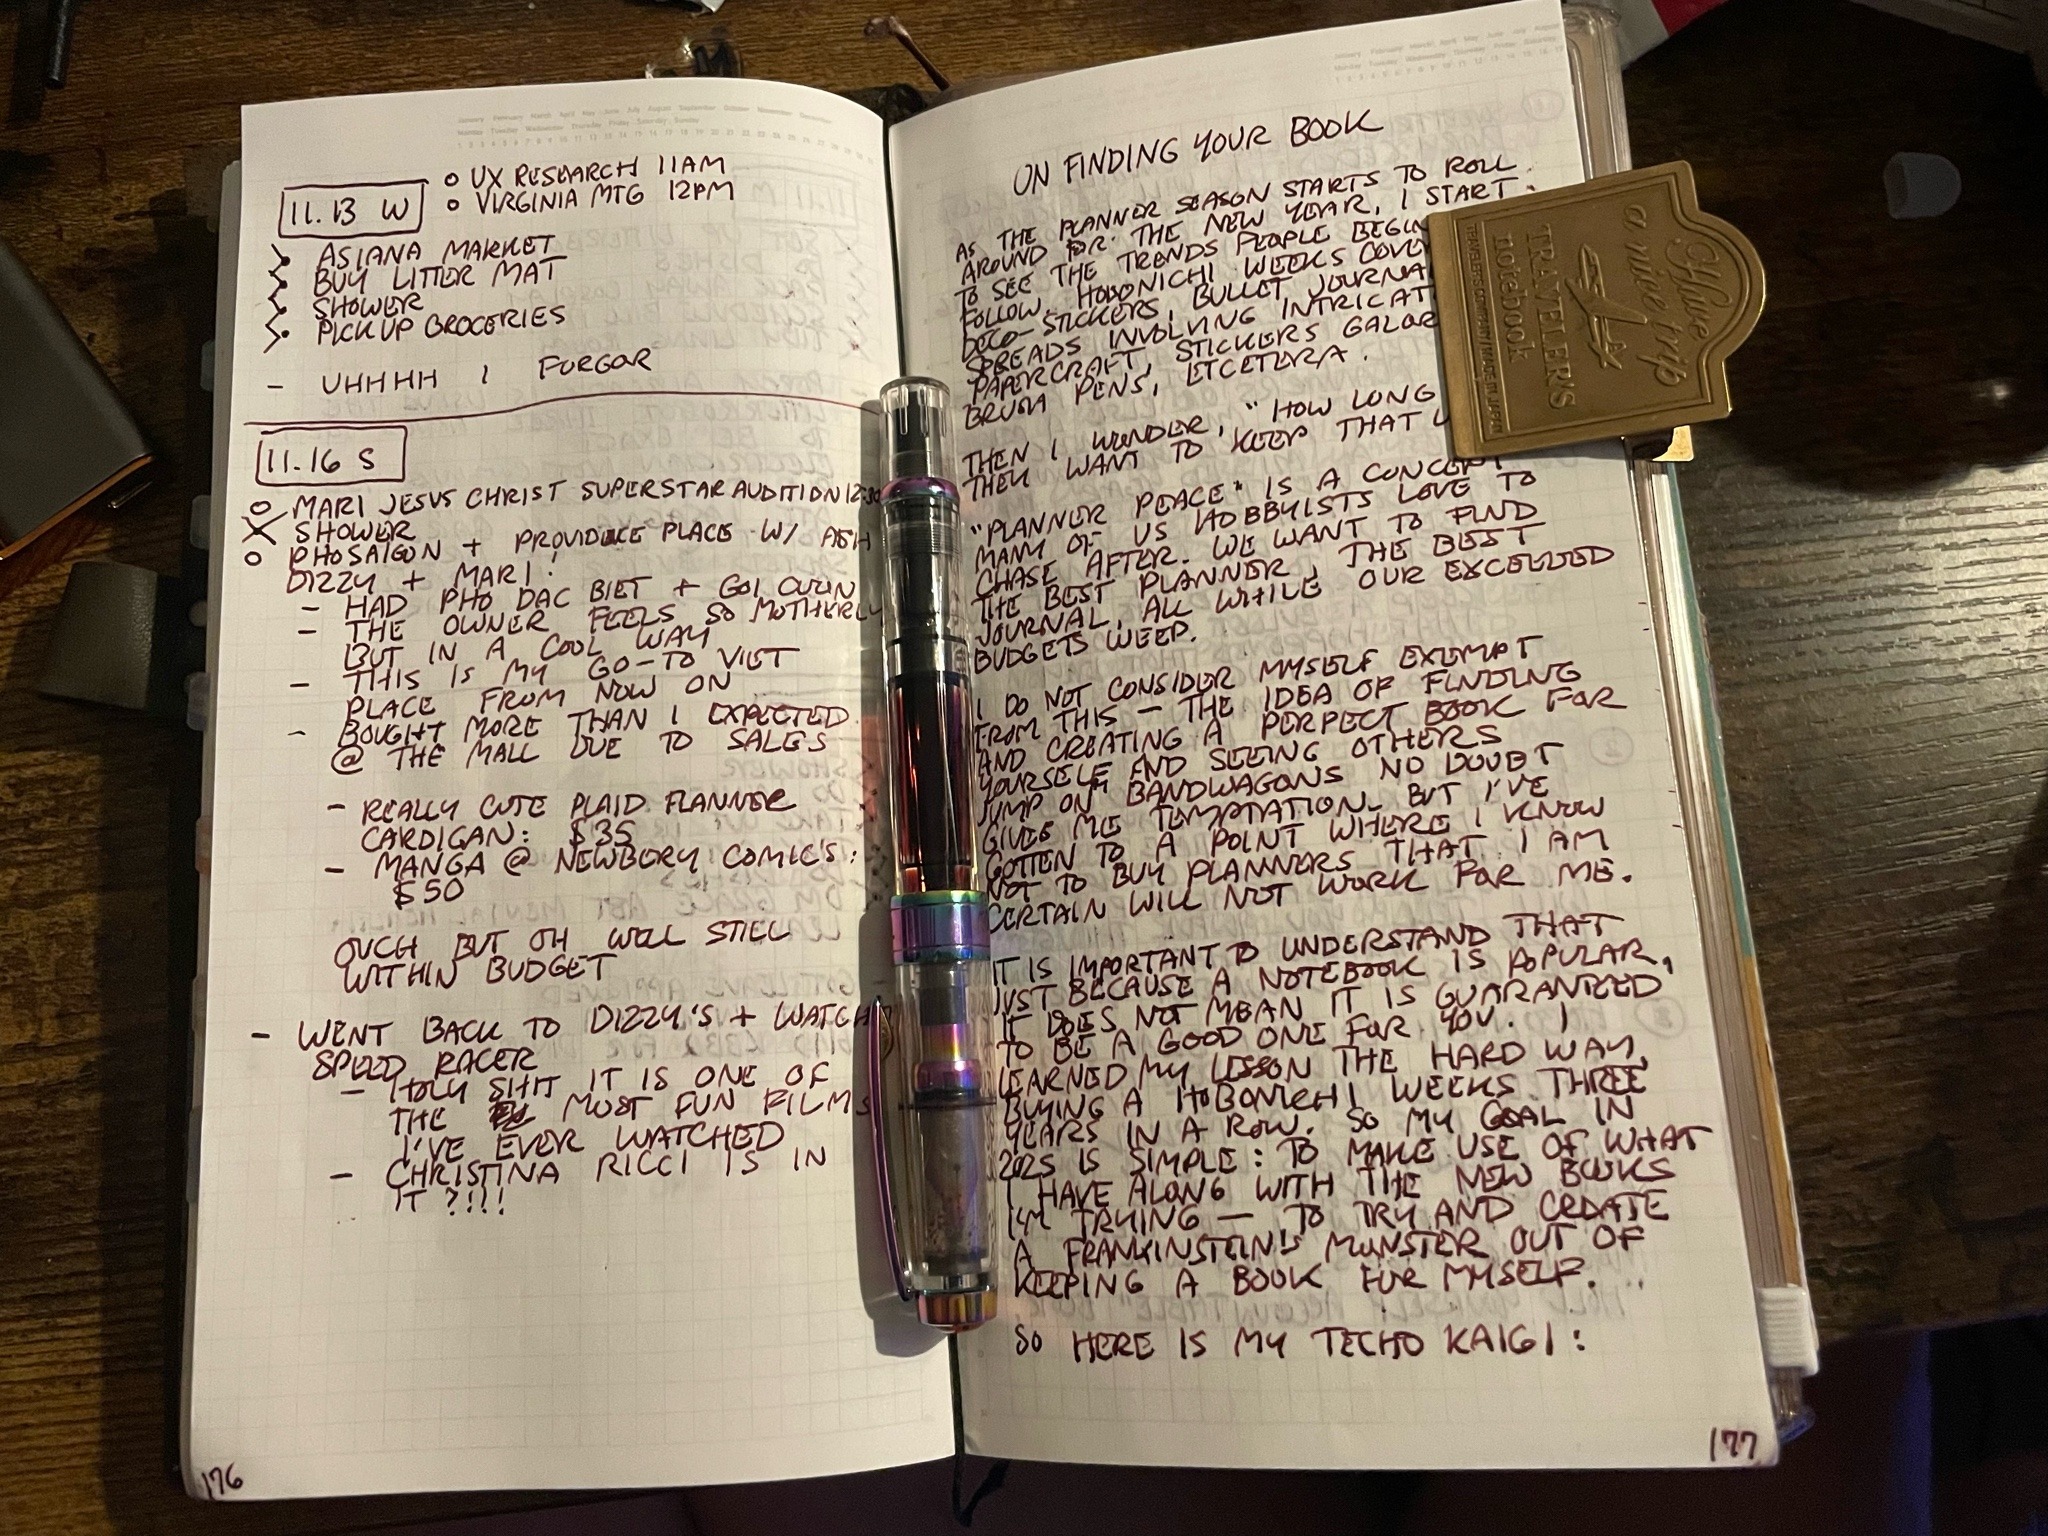 January February March April May June July August September October November December
Monday Tuesday Wednesday Thursday Friday Saturday Sunday
11.13 W
o UX RESEARCH 11AM
o VIRGINIA MTG 12PM
ASIANA MARKET
BUY LITTER MAT
SHOWER
PICK UP GROCERIES
- UHHHH I FORGOR
11.16 S
o MARI JESUS CHRIST SUPERSTAR AUDITION 12:30
X SHOWER
o PHO SAIGON + PROVIDENCE PLACE W/ ASH
DIZZY + MARI!
- HAD PHO DAC BIET + GOI CUON
- THE OWNER FEELS SO MOTHERLY
BUT IN A COOL WAY
- THIS IS MY GO-TO VIET
PLACE FROM NOW ON
- BOUGHT MORE THAN I EXPECTED
@ THE MALL DUE TO SALES
- REALLY CUTE PLAID FLANNER
CARDIGAN: $35
- MANGA @ NEWBERY COMIC'S:
$50
OUCH BUT OH WELL STILL
WITHIN BUDGET
- WENT BACK TO DIZZY'S + WATCHED
SPEED RACER
- HOLY SHIT IT IS ONE OF
THE MOST FUN FILMS
I'VE EVER WATCHED
- CHRISTINA RICCI IS IN
IT?!!!
176
ON FINDING YOUR BOOK
AS THE PLANNER SEASON STARTS TO ROLL
AROUND FOR THE NEW YEAR, I START
TO SEE THE TRENDS PEOPLE BEGIN
FOLLOW. HOBONICHI WEEKS COVE
DECO-STICKERS, BULLET JOURNA
SPREADS INVOLVING INTRICAT
PAPERCRAFT, STICKERS GALOR
BRUSH PENS, ETCETERA.
THEN I WONDER, "HOW LONG
THEY WANT TO KEEP THAT U
"PLANNER PEACE" IS A CONCEPT
MANY OF US HOBBYISTS LOVE TO
CHASE AFTER. WE WANT TO FIND
THE BEST PLANNER, THE BEST
JOURNAL, ALL WHILE OUR EXCEEDED
BUDGETS WEEP.
I DO NOT CONSIDER MYSELF EXEMPT
FROM THIS - THE IDEA OF FINDING
AND CREATING A PERFECT BOOK FOR
YOURSELF AND SEEING OTHERS
JUMP ON BANDWAGONS NO DOUBT
GIVES ME TEMPTATION. BUT I'VE
GOTTEN TO A POINT WHERE I KNOW
NOT TO BUY PLANNERS THAT I AM
CERTAIN WILL NOT WORK FOR ME.
IT IS IMPORTANT TO UNDERSTAND THAT
JUST BECAUSE A NOTEBOOK IS POPULAR,
IT DOES NOT MEAN IT IS GUARANTEED
TO BE A GOOD ONE FOR YOU. I
LEARNED MY LESSON THE HARD WAY,
BUYING A HOBONICHI WEEKS THREE
YEARS IN A ROW. SO MY GOAL IN
2025 IS SIMPLE: TO MAKE USE OF WHAT
I HAVE ALONG WITH THE NEW BOOKS
I'M TRYING - TO TRY AND CREATE
A FRANKINSTEIN'S MONSTER OUT OF
KEEPING A BOOK FOR MYSELF.
SO HERE IS MY TECHO KAIGI:
177
Have
a nice trip
TRAVELER'S
notebook
TRAVELER'S COMPANY MADE IN JAPAN